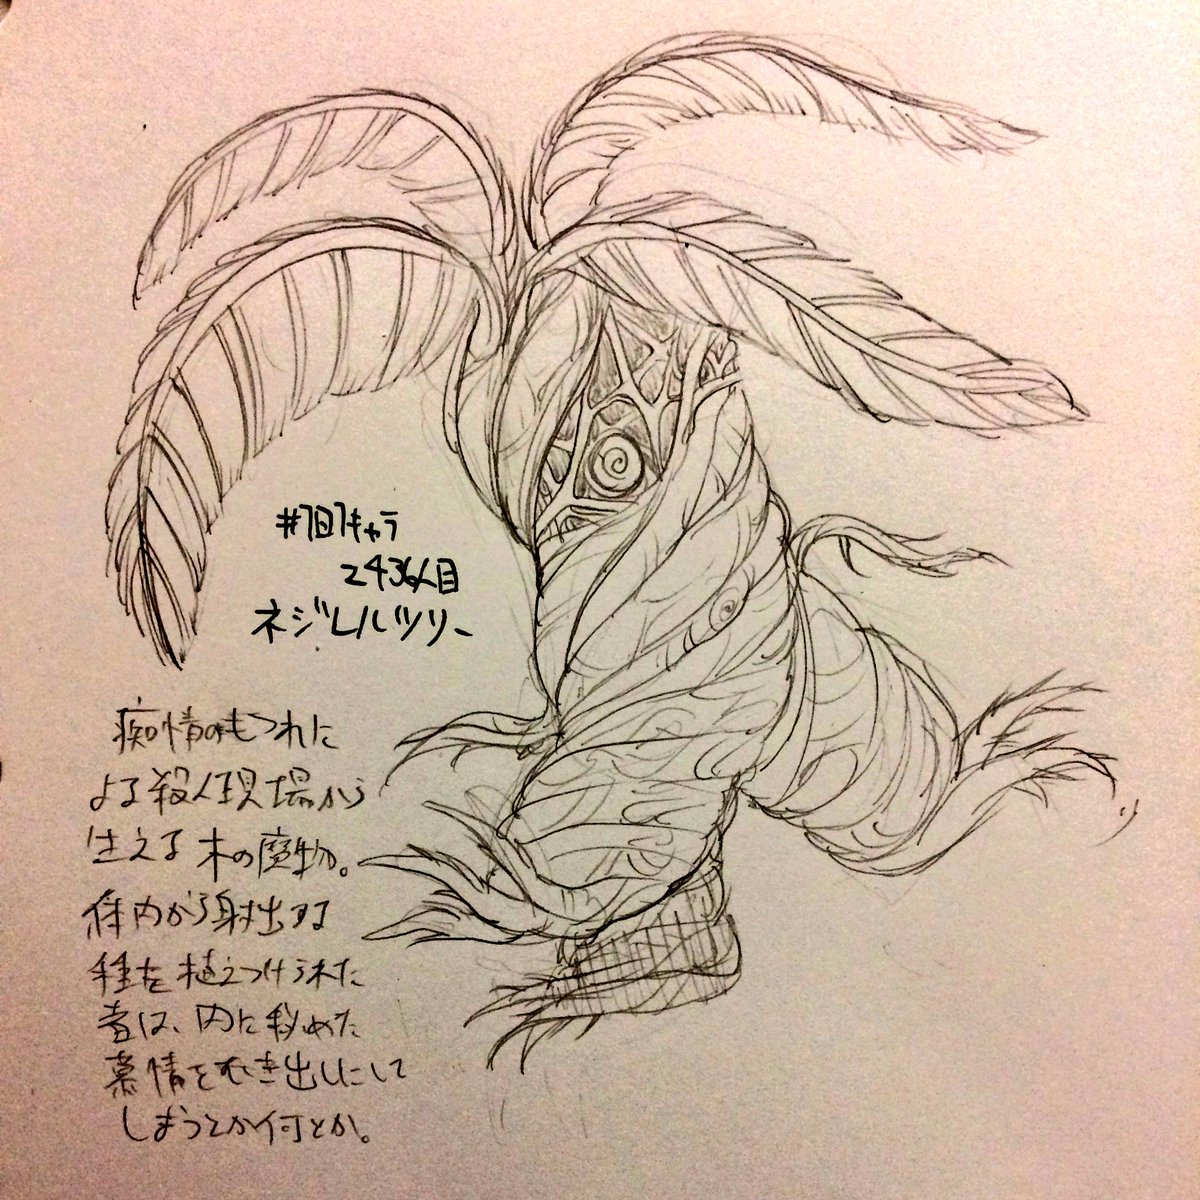 #1日1キャラ
2436人目
ネジレルツリー
痴情のもつれに
よる殺人現場から
生える木の魔物。
体内から射出する
種を植えつけられた
者は、内に秘めた
慕情をむき出しにして
しまうとか何とか。